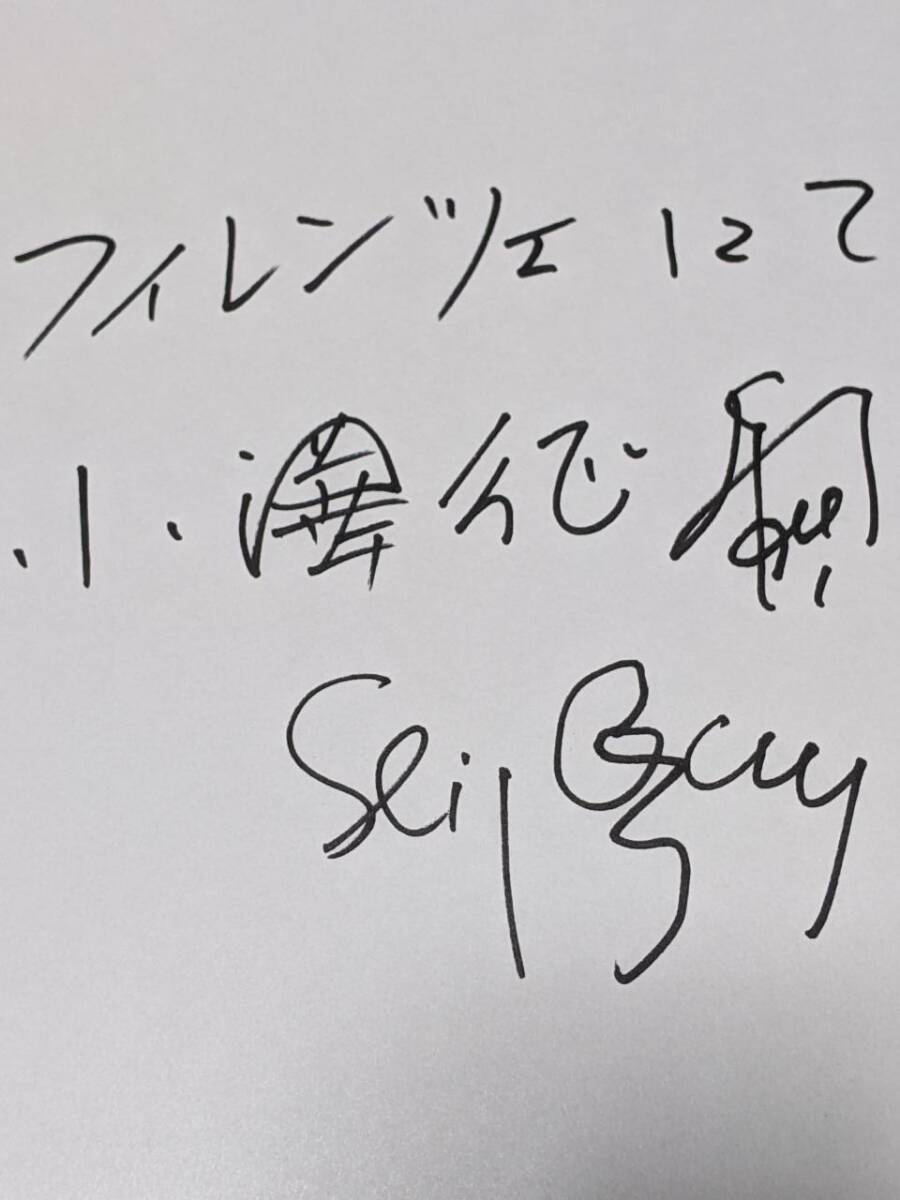 フィレンツェにて
小澤征爾
Seiji Ozawa